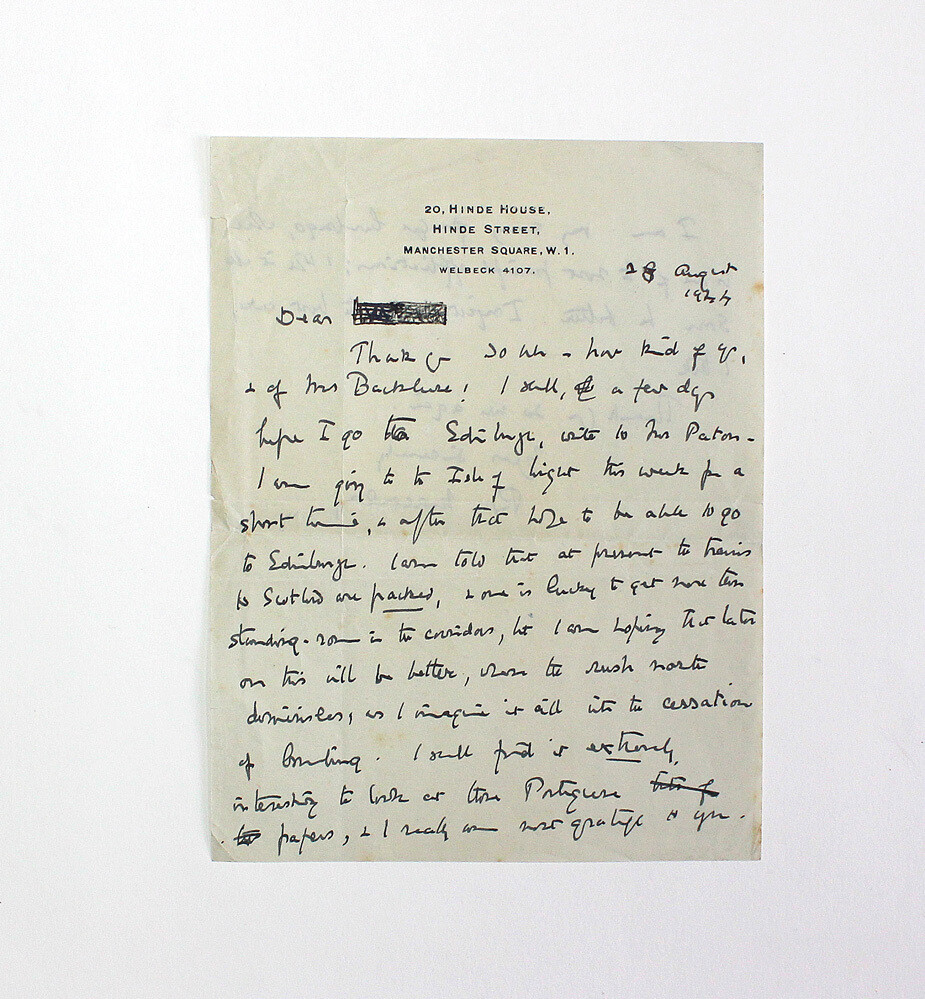 20, HINDE HOUSE,
HINDE STREET,
MANCHESTER SQUARE, W. 1.
WELBECK 4107.
28 August
1944
Dear
Thank you so much – how kind of you,
& of Mrs ! I shall, a few days
before I go to Edinburgh, write to Mrs Paton –
I am going to the Isle of Wight this week for a
short time, & after that hope to be able to go
to Edinburgh. I am told that at present the trains
to Scotland are packed, & one is lucky to get more than
standing-room in the corridors, but I am hoping that later
on this will be better, when the rush north
diminishes, as I imagine it will with the cessation
of bombing. I shall find it extremely
interesting to look at those Portuguese
papers, & I really am most grateful to you.